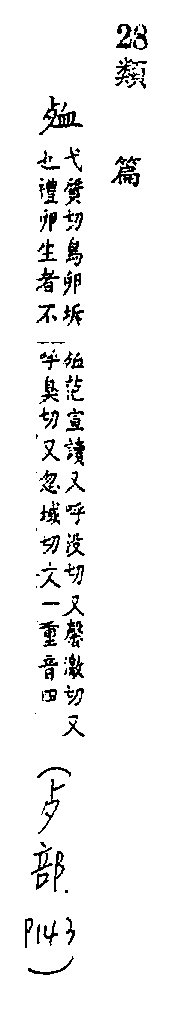 28
類篇
𧖅
弋質切鳥卵坼
也禮卵生者不
𣧑范宣讀又呼没切又馨激切又
呼臭切又忽域切文一重音四
(歺部.
P143)